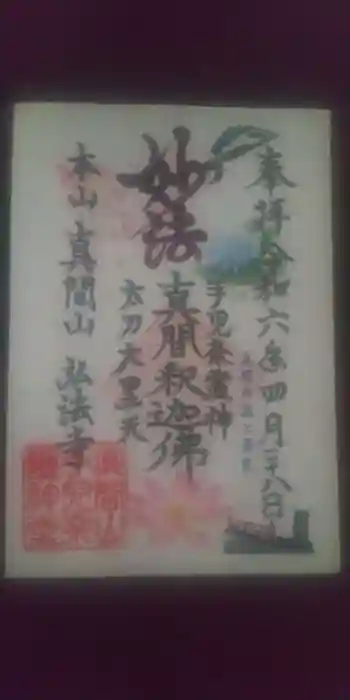 奉拝 令和六年四月二十八日
妙法
手児奈霊神
真間釈迦佛
太刀大黒天
本山 真間山 弘法寺